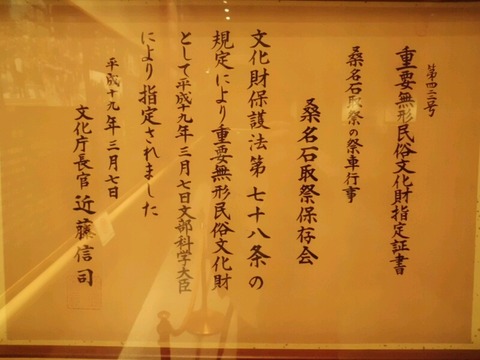 第四三号
重要無形民俗文化財指定証書
桑名石取祭の祭車行事
桑名石取祭保存会
文化財保護法第七十八条の
規定により重要無形民俗文化財
として平成十九年三月七日文部科学大臣
により指定されました
平成十九年三月七日
文化庁長官 近藤信司